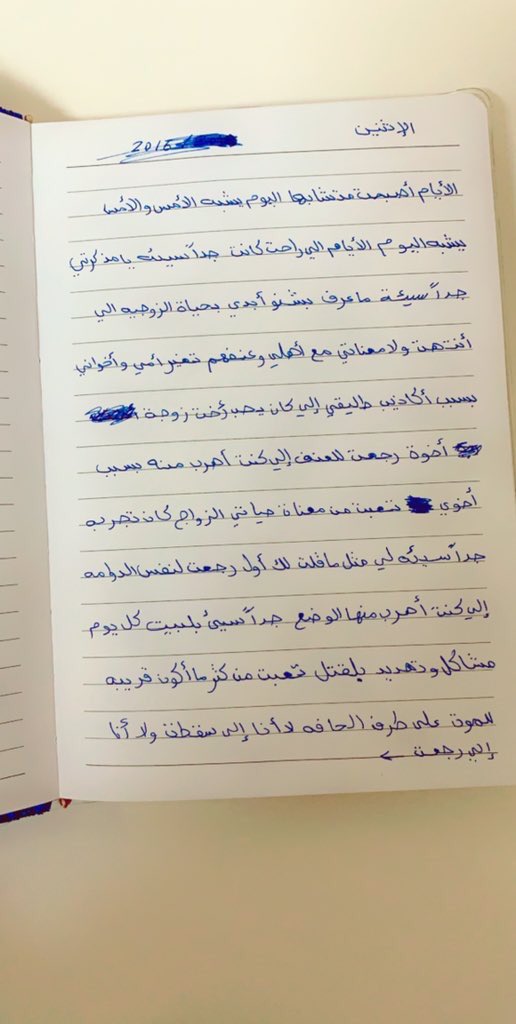 الإثنين
2015
الأيام أصبحت متشابها اليوم يشبه الأمس والأمس
يشبه اليوم الأيام الي راحت كانت جداً سيئه يا مذكرتي
جداً سيئة ماعرف بشنو أبدي بحياة الزوجيه الي
أنتهت ولا معناتي مع أهلي وعنفهم تغير أمي وأخواني
بسبب أكاذيب طليقي إلي كان يحب أخت زوجة
أخوة رجعت للعنف إلي كنت أهرب منه بسبب
أخوي تعبت من معناة حياتي الزواج كان تجربه
جداً سيئه لي مثل ماقلت لك أول رجعت لنفس الدوامه
إلي كنت أهرب منها الوضع جداً سيئ بلبيت كل يوم
مشاكل وتهديد بلقتل تعبت من كثر ماأكون قريبه
للموت على طرف الحافه لا أنا إلي سقطت ولا أنا
إلي رجعت ←